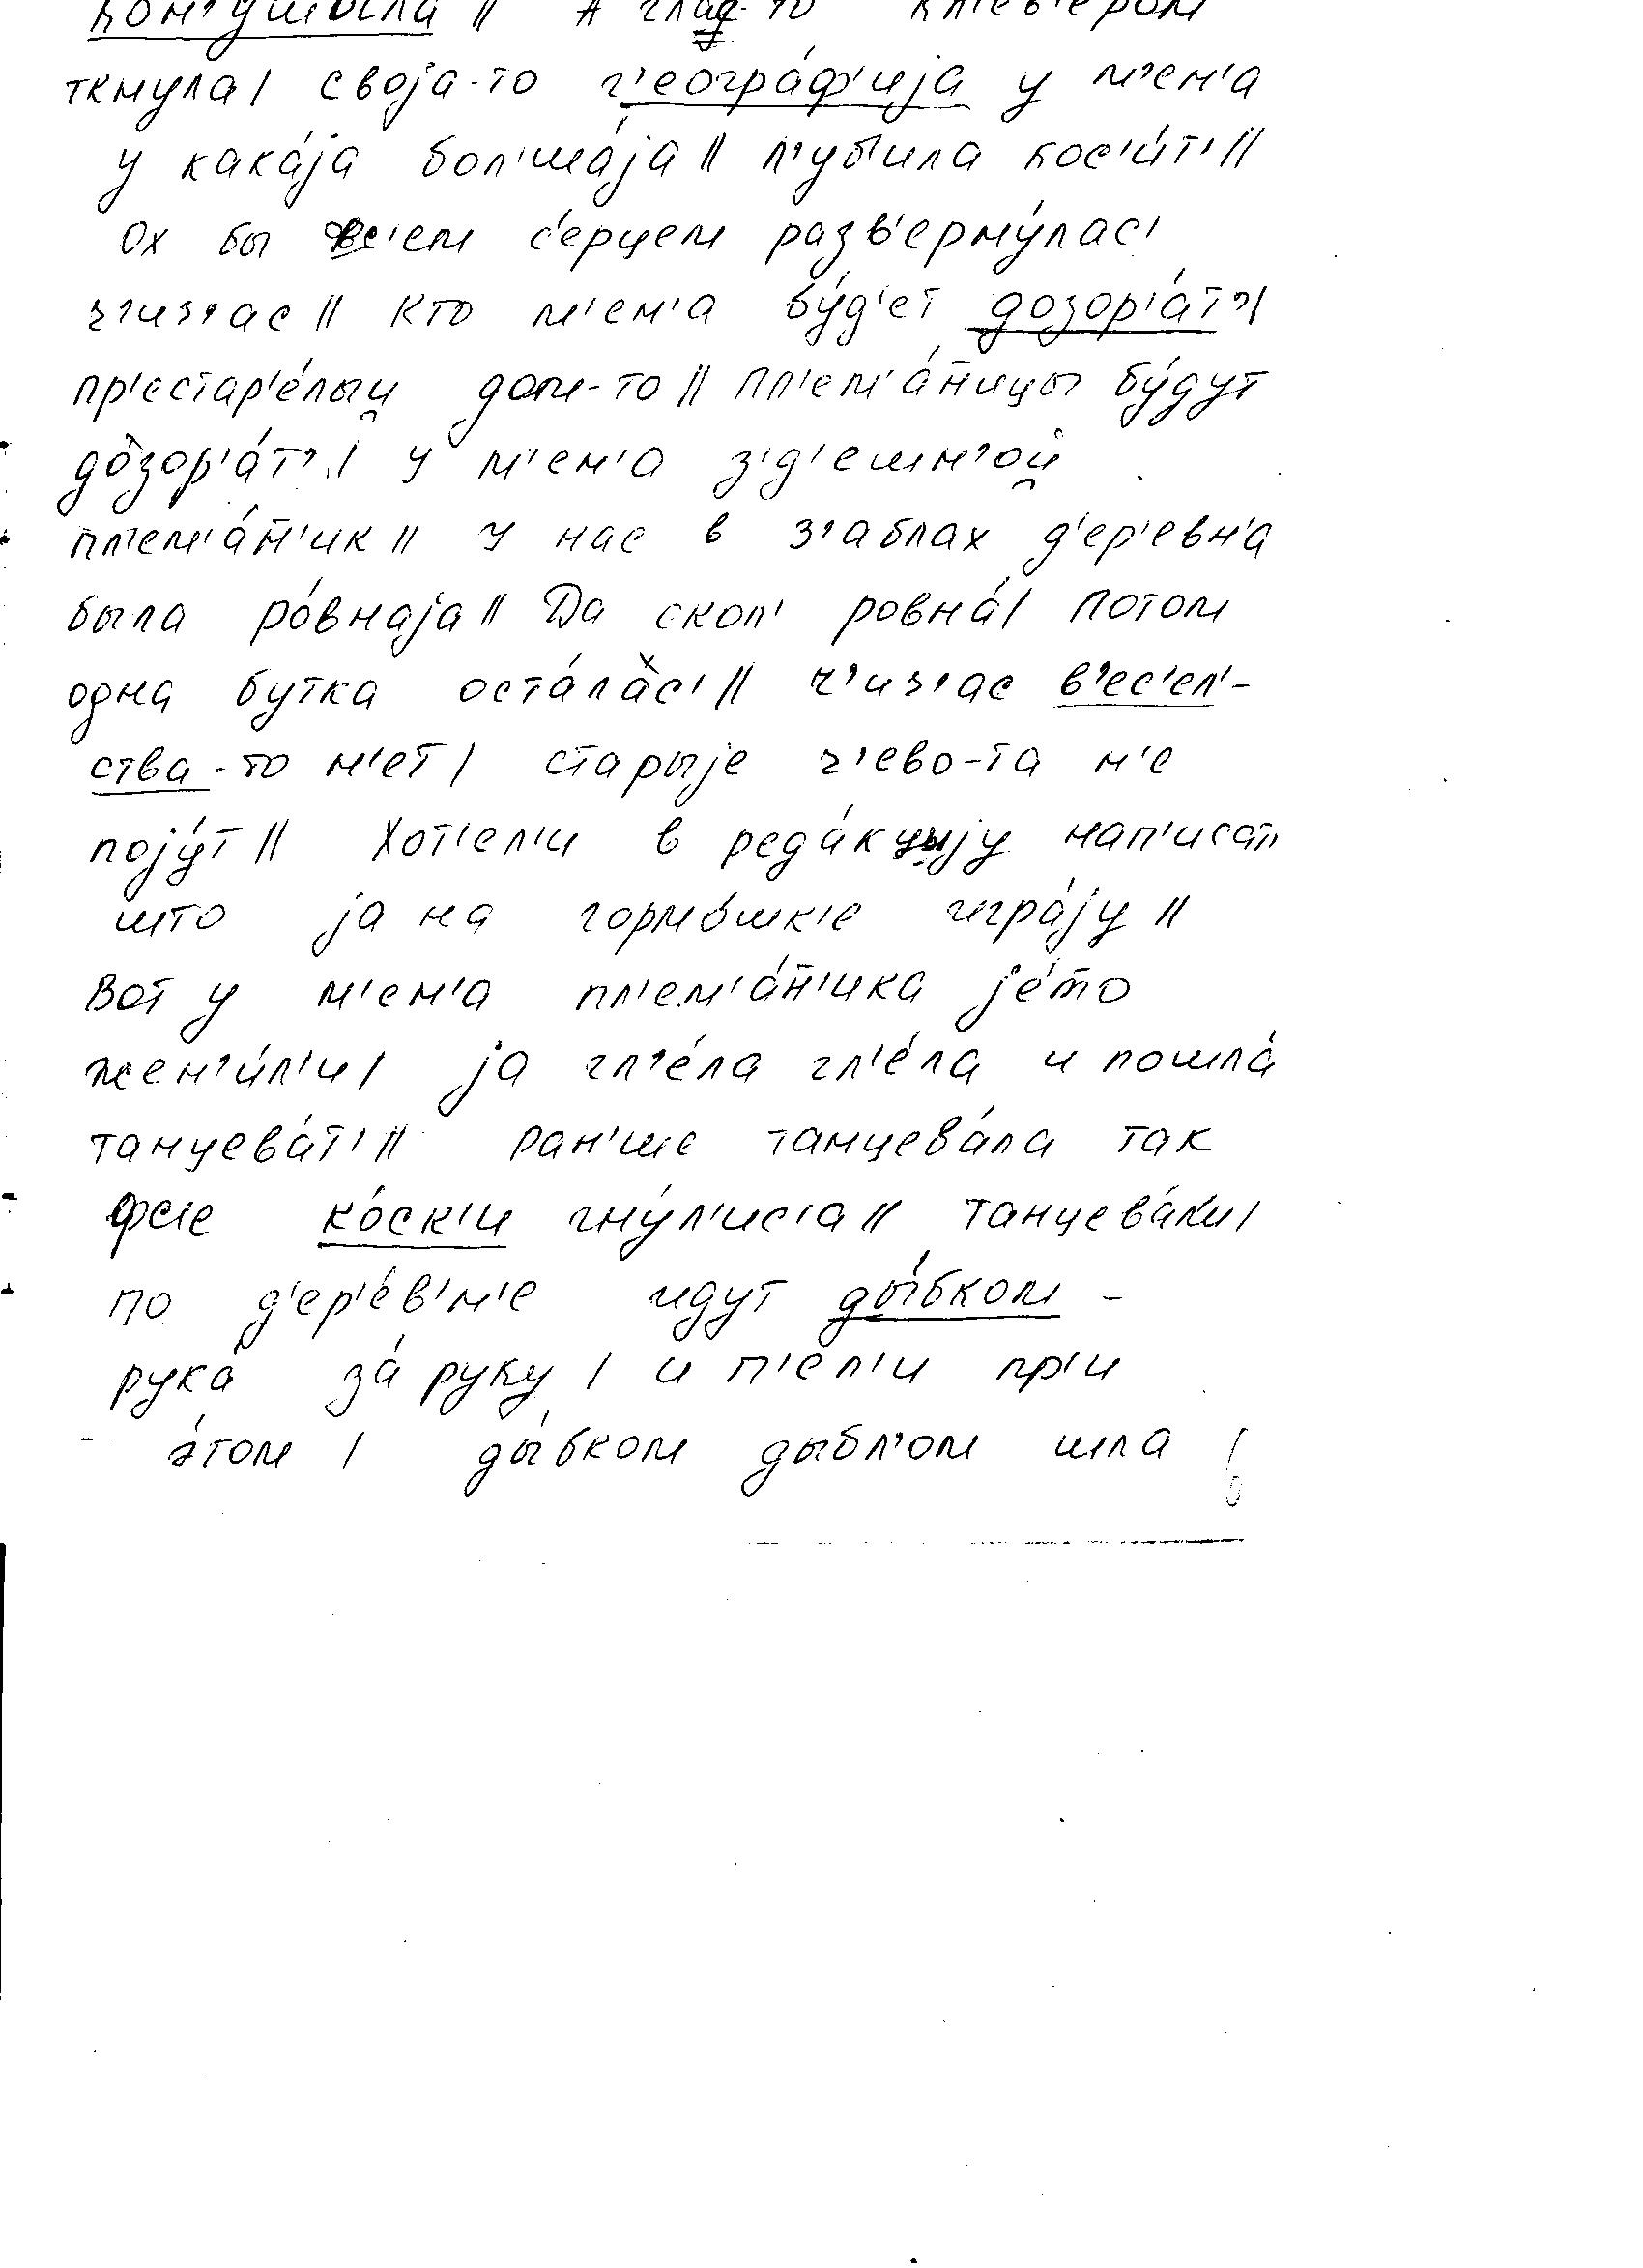 кон'ушыла // А глаз-то кл'ев'ером
ткнула / своjа-то г'еогра́ф'иjа у м'ен'а
у кака́jа бол'ша́jа // л'убила кос'и́т' //
Ох бы вс'ем с'е́рцем разв'ерну́лас'
ч'из'ас // кто м'ен'а бу́д'ет дозор'а́т' /
пр'естар'е́лый дом-то // пл'ем'а́н̄ицы бу́дут
дозор'а́т' / у м'ен'а з'д'ешн'ой
пл'ем'а́н̄'ик // у нас в з'аблах д'ер'евн'а
была ро́внаjа // Да скол' ровна́ / потом
одна бутка оста́лас' // ч'из'ас в'ес'ел'-
ства-то н'ет / старыjе ч'ево-та н'е
поjу́т // Хот'ел'и в реда́кцыjу нап'исат'
што jа на гормо́шк'е игра́jу //
Вот у м'ен'а пл'ем'а́н̄'ика jе́то
жен'и́л'и / jа гл'е́ла гл'е́ла и пошла́
танцева́т' // ран'ше танцева́ла так
фс'е ко́ск'и гну́л'ис'а // танцева́л'и /
по д'ер'е́в'н'е идут ды́бком -
рука́ за́ руку / и п'ел'и пр'и
э́том / ды́бком дыбл'ом шла